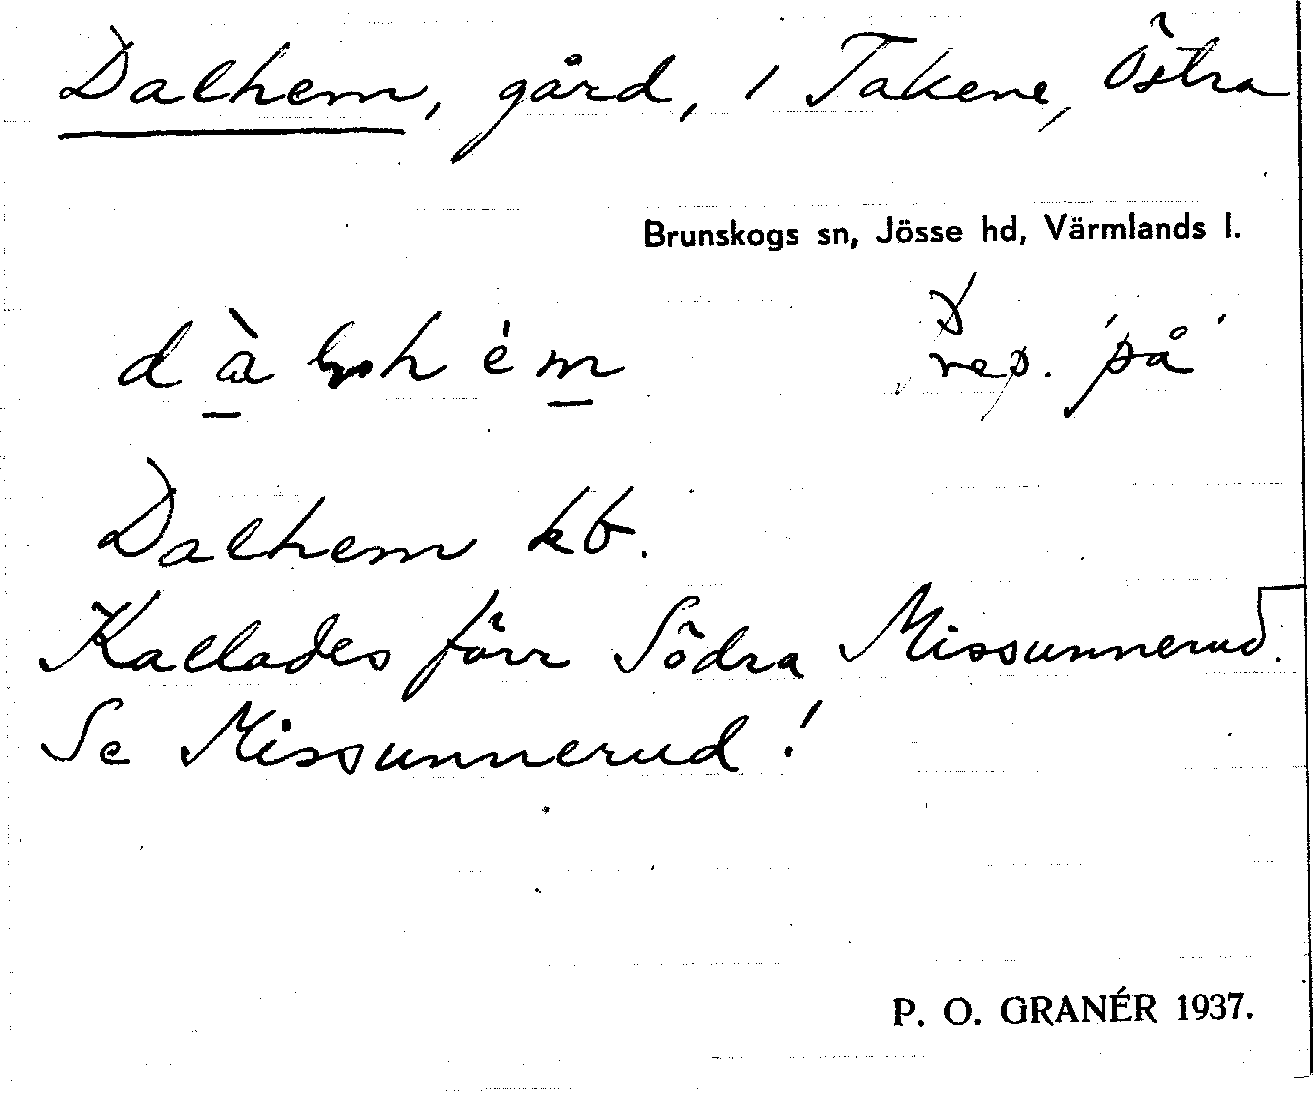 Dalhem, gård, i Takene, Östra
Brunskogs sn, Jösse hd, Värmlands l.
prep. 'på'
Dalhem kb.
Kallades förr Södra Missunnerud.
Se Missunnerud!
P. O. GRANÉR 1937.